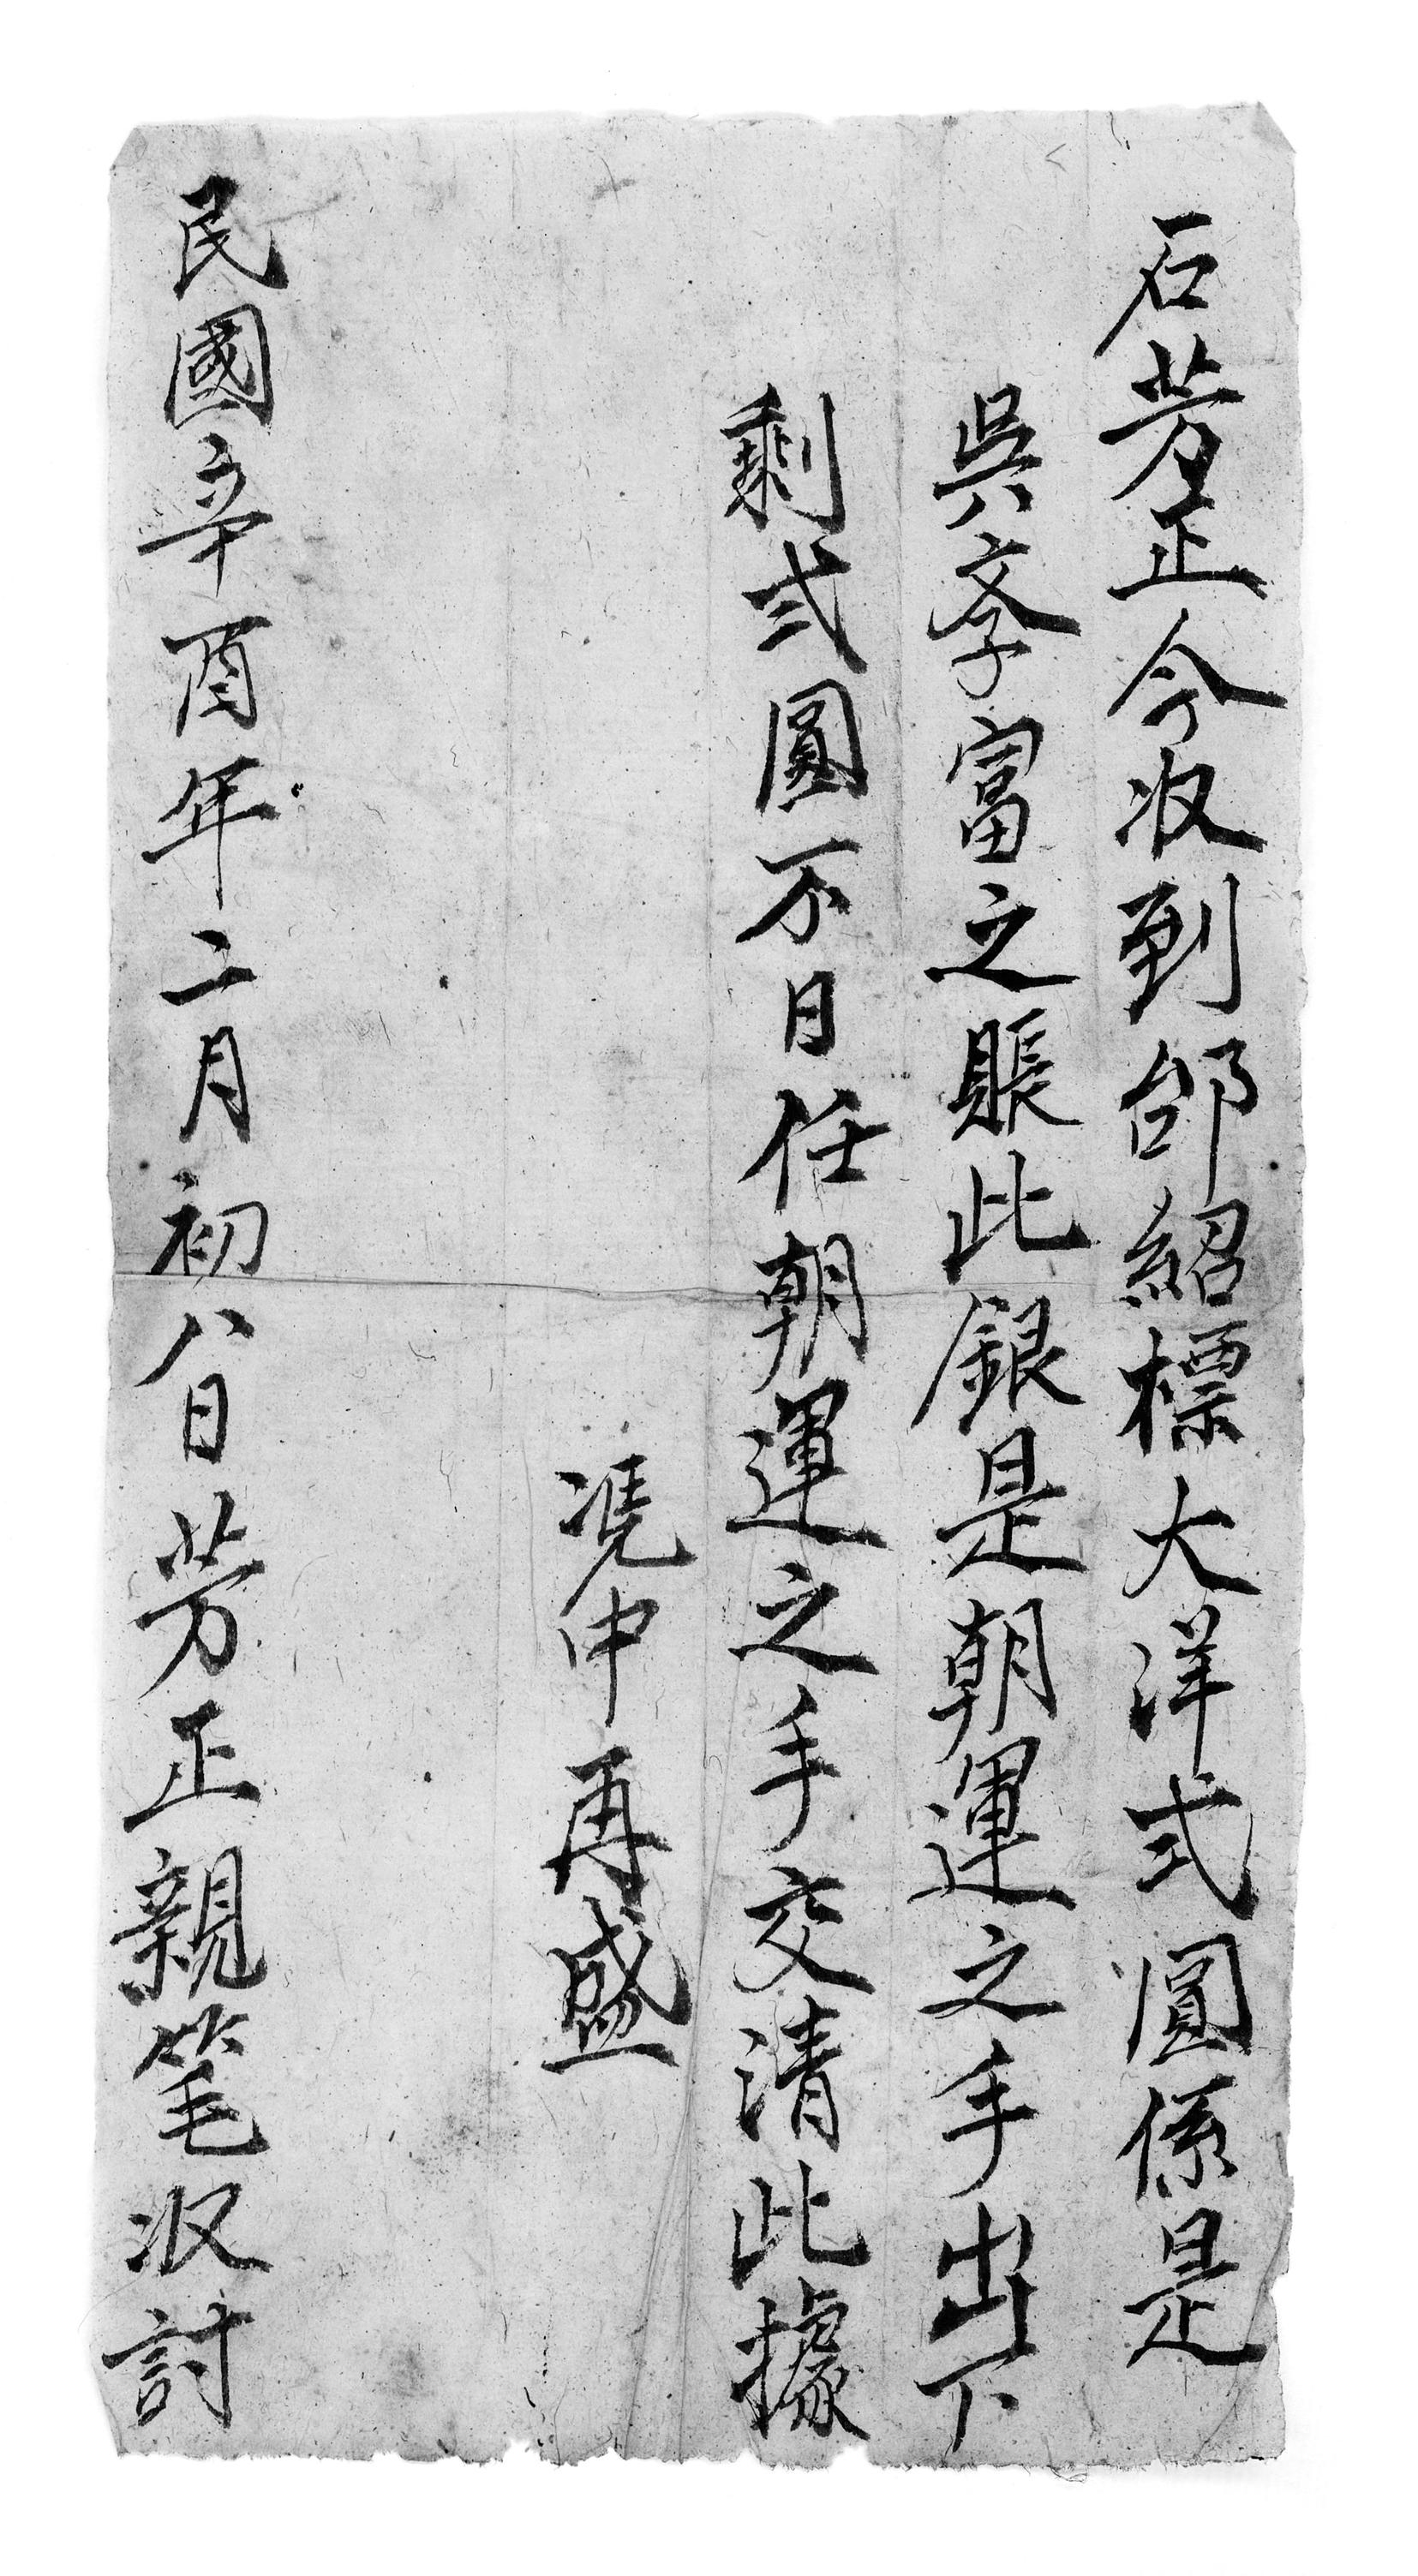 石芳正今收到邰紹標大洋弍圓係是
吳斈富之賬此銀是朝運之手出下
剩弍圓不日任朝運之手交清此據
凴中再盛
民國辛酉年二月初八日芳正親筆收討